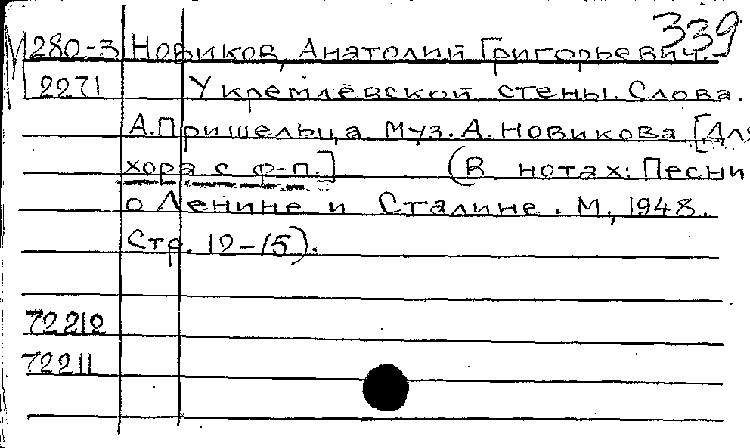 339
М280-3 Новиков, Анатолий Григорьевич.
2271 У кремлёвской стены. Слова
А. Пришельца. Муз. А. Новикова. [Для
хора с ф-п.] (В нотах: Песни
о Ленине и Сталине. М., 1948.
Стр. 12-15).
72212
72211